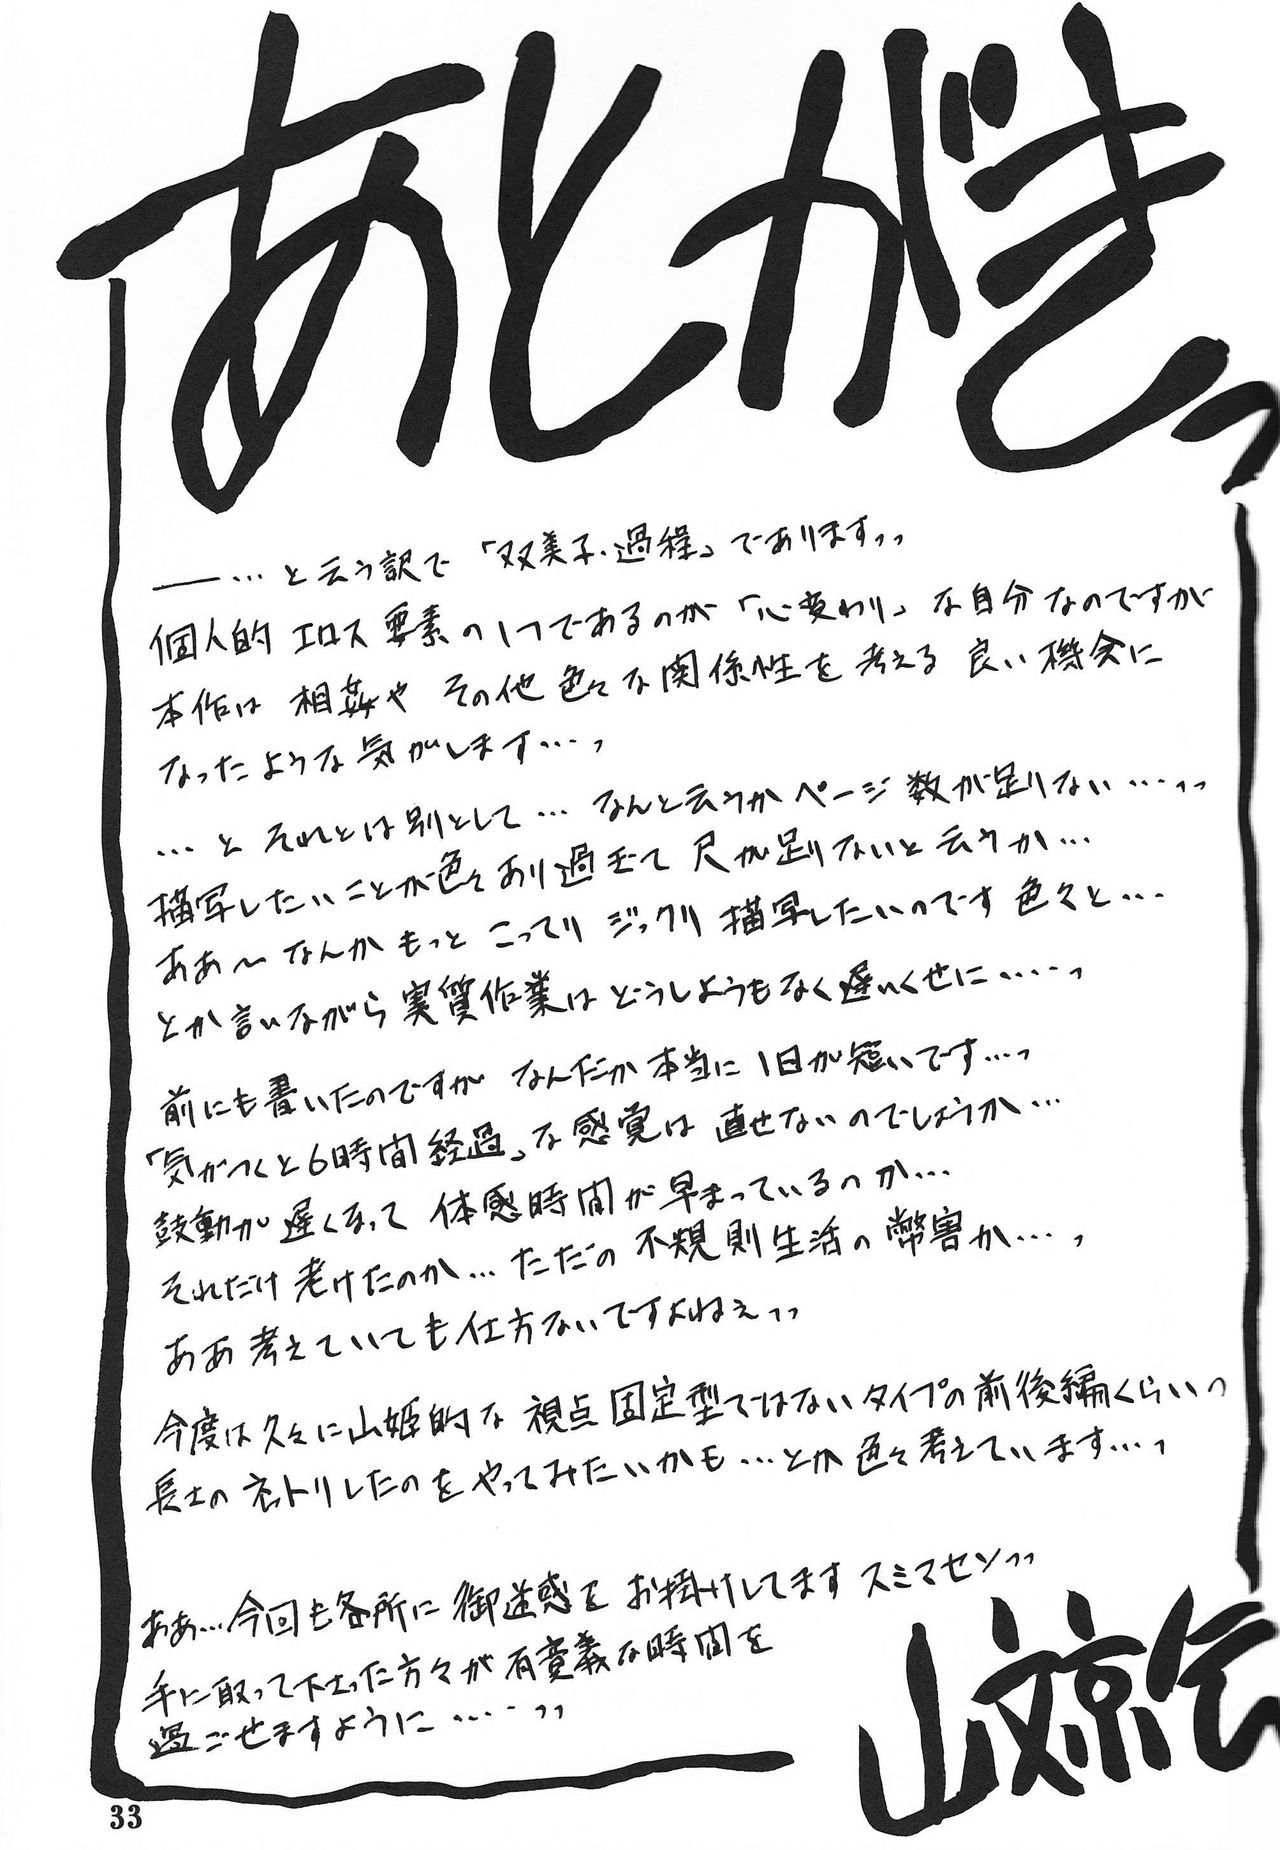 あとがきっ
――…と云う訳で「双美子・過程」でありますっっ
個人的エロス要素の1つであるのが「心変わり」な自分なのですが
本作は相姦やその他色々な関係性を考える良い機会に
なったような気がします…っ
…とそれとは別として…なんと云うかページ数が足りない…っっ
描写したいことが色々あり過ぎて尺が足りないと云うか…
ああ〜なんかもっとこってりジックリ描写したいのです色々と…
とか言いながら実質作業はどうしようもなく遅いくせに……っ
前にも書いたのですがなんだか本当に1日が短いです…っ
「気がつくと6時間経過」な感覚は直せないのでしょうか…
鼓動が遅くなって体感時間が早まっているのか…
それだけ老けたのか…ただの不規則生活の弊害か…っ
ああ考えていても仕方ないですよねぇっっ
今度は久々に山姫的な視点固定型ではないタイプの前後編くらいっ
長土のネットリしたのをやってみたいかも…とか色々考えています…っ
ああ…今回も各所に御迷惑をお掛けしてますスミマセンっっ
手に取って下さった方々が有意義な時間を
過ごせますように……っっ
山文京伝
33